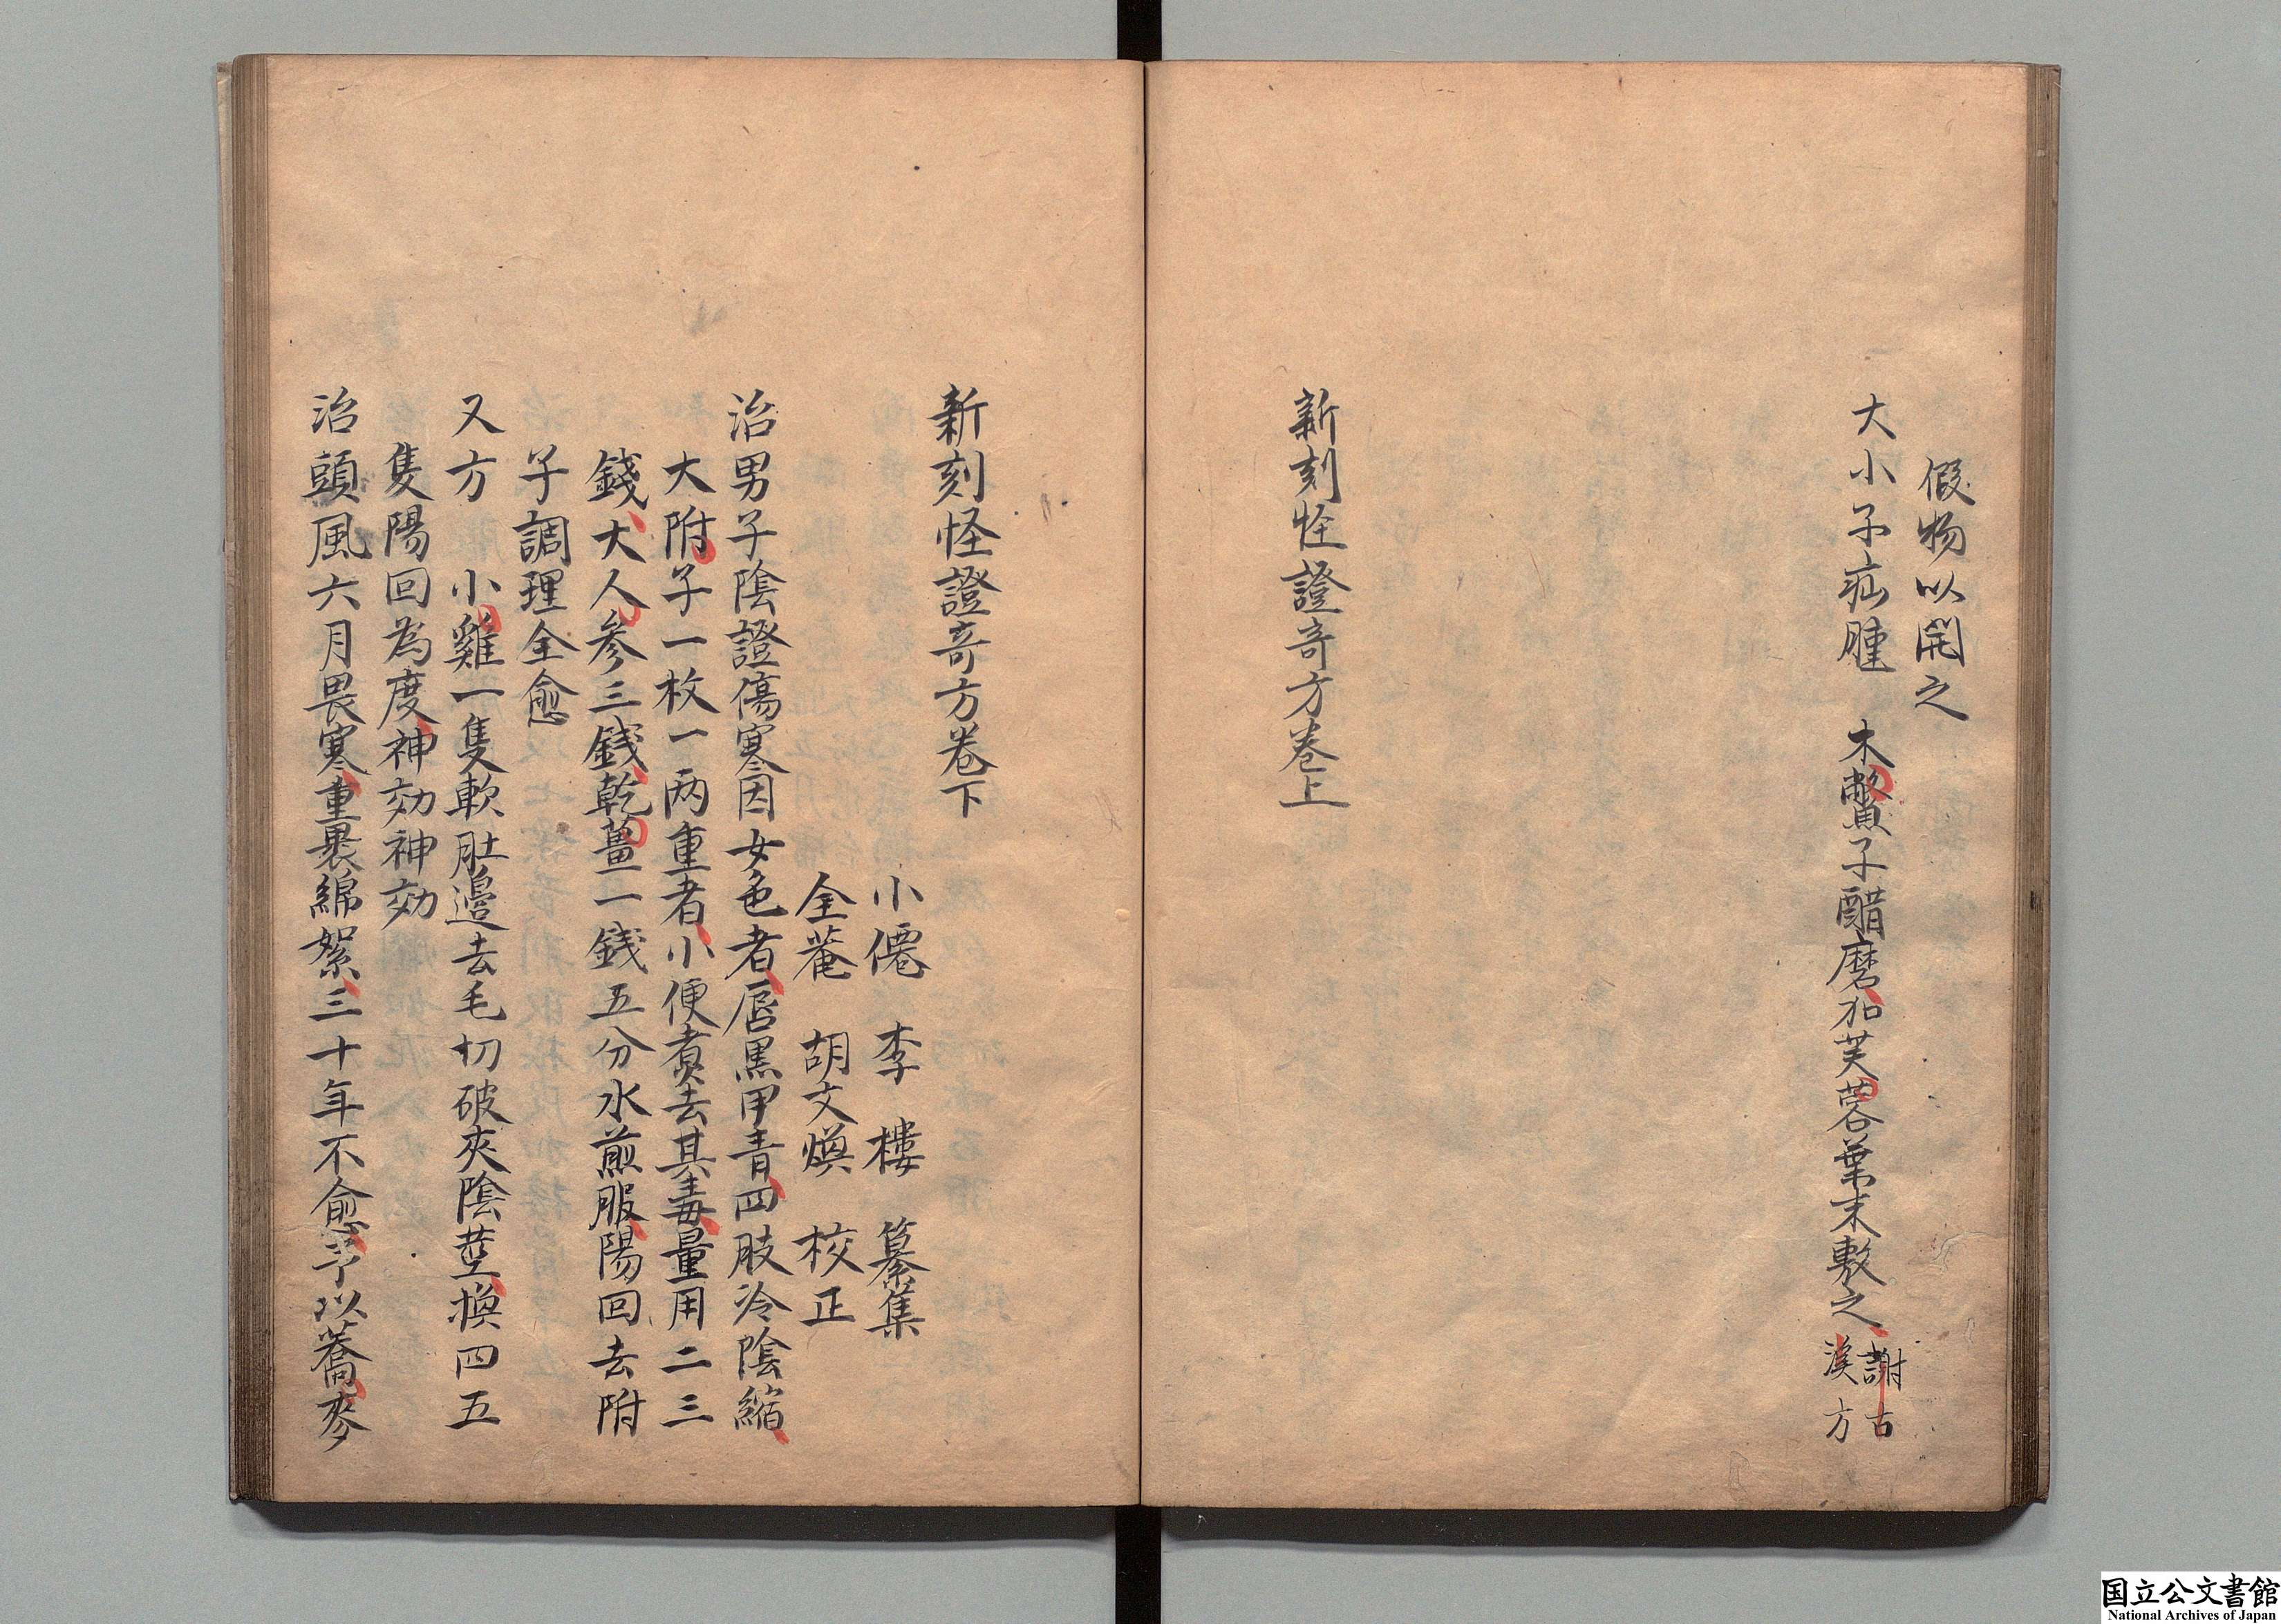 假物以開之
大小子疝腫　木鱉子醋磨加芙蓉葉末敷之 謝古漢方
新刻怪證奇方卷上
新刻怪證奇方卷下
小僊　李　樓　纂集
全菴　胡文煥　校正
治男子陰證傷寒因女色者唇黒甲青四肢冷陰縮
大附子一枚一两重者小便煑去其毒量用二三
錢大人参三錢乾薑一錢五分水煎服陽回去附
子調理全愈
又方　小雞一隻軟肚邉去毛切破夾陰莖換四五
隻陽回為度神効神効
治頭風六月畏寒重裹綿絮三十年不愈予以蕎麥
国立公文書館
National Archives of Japan